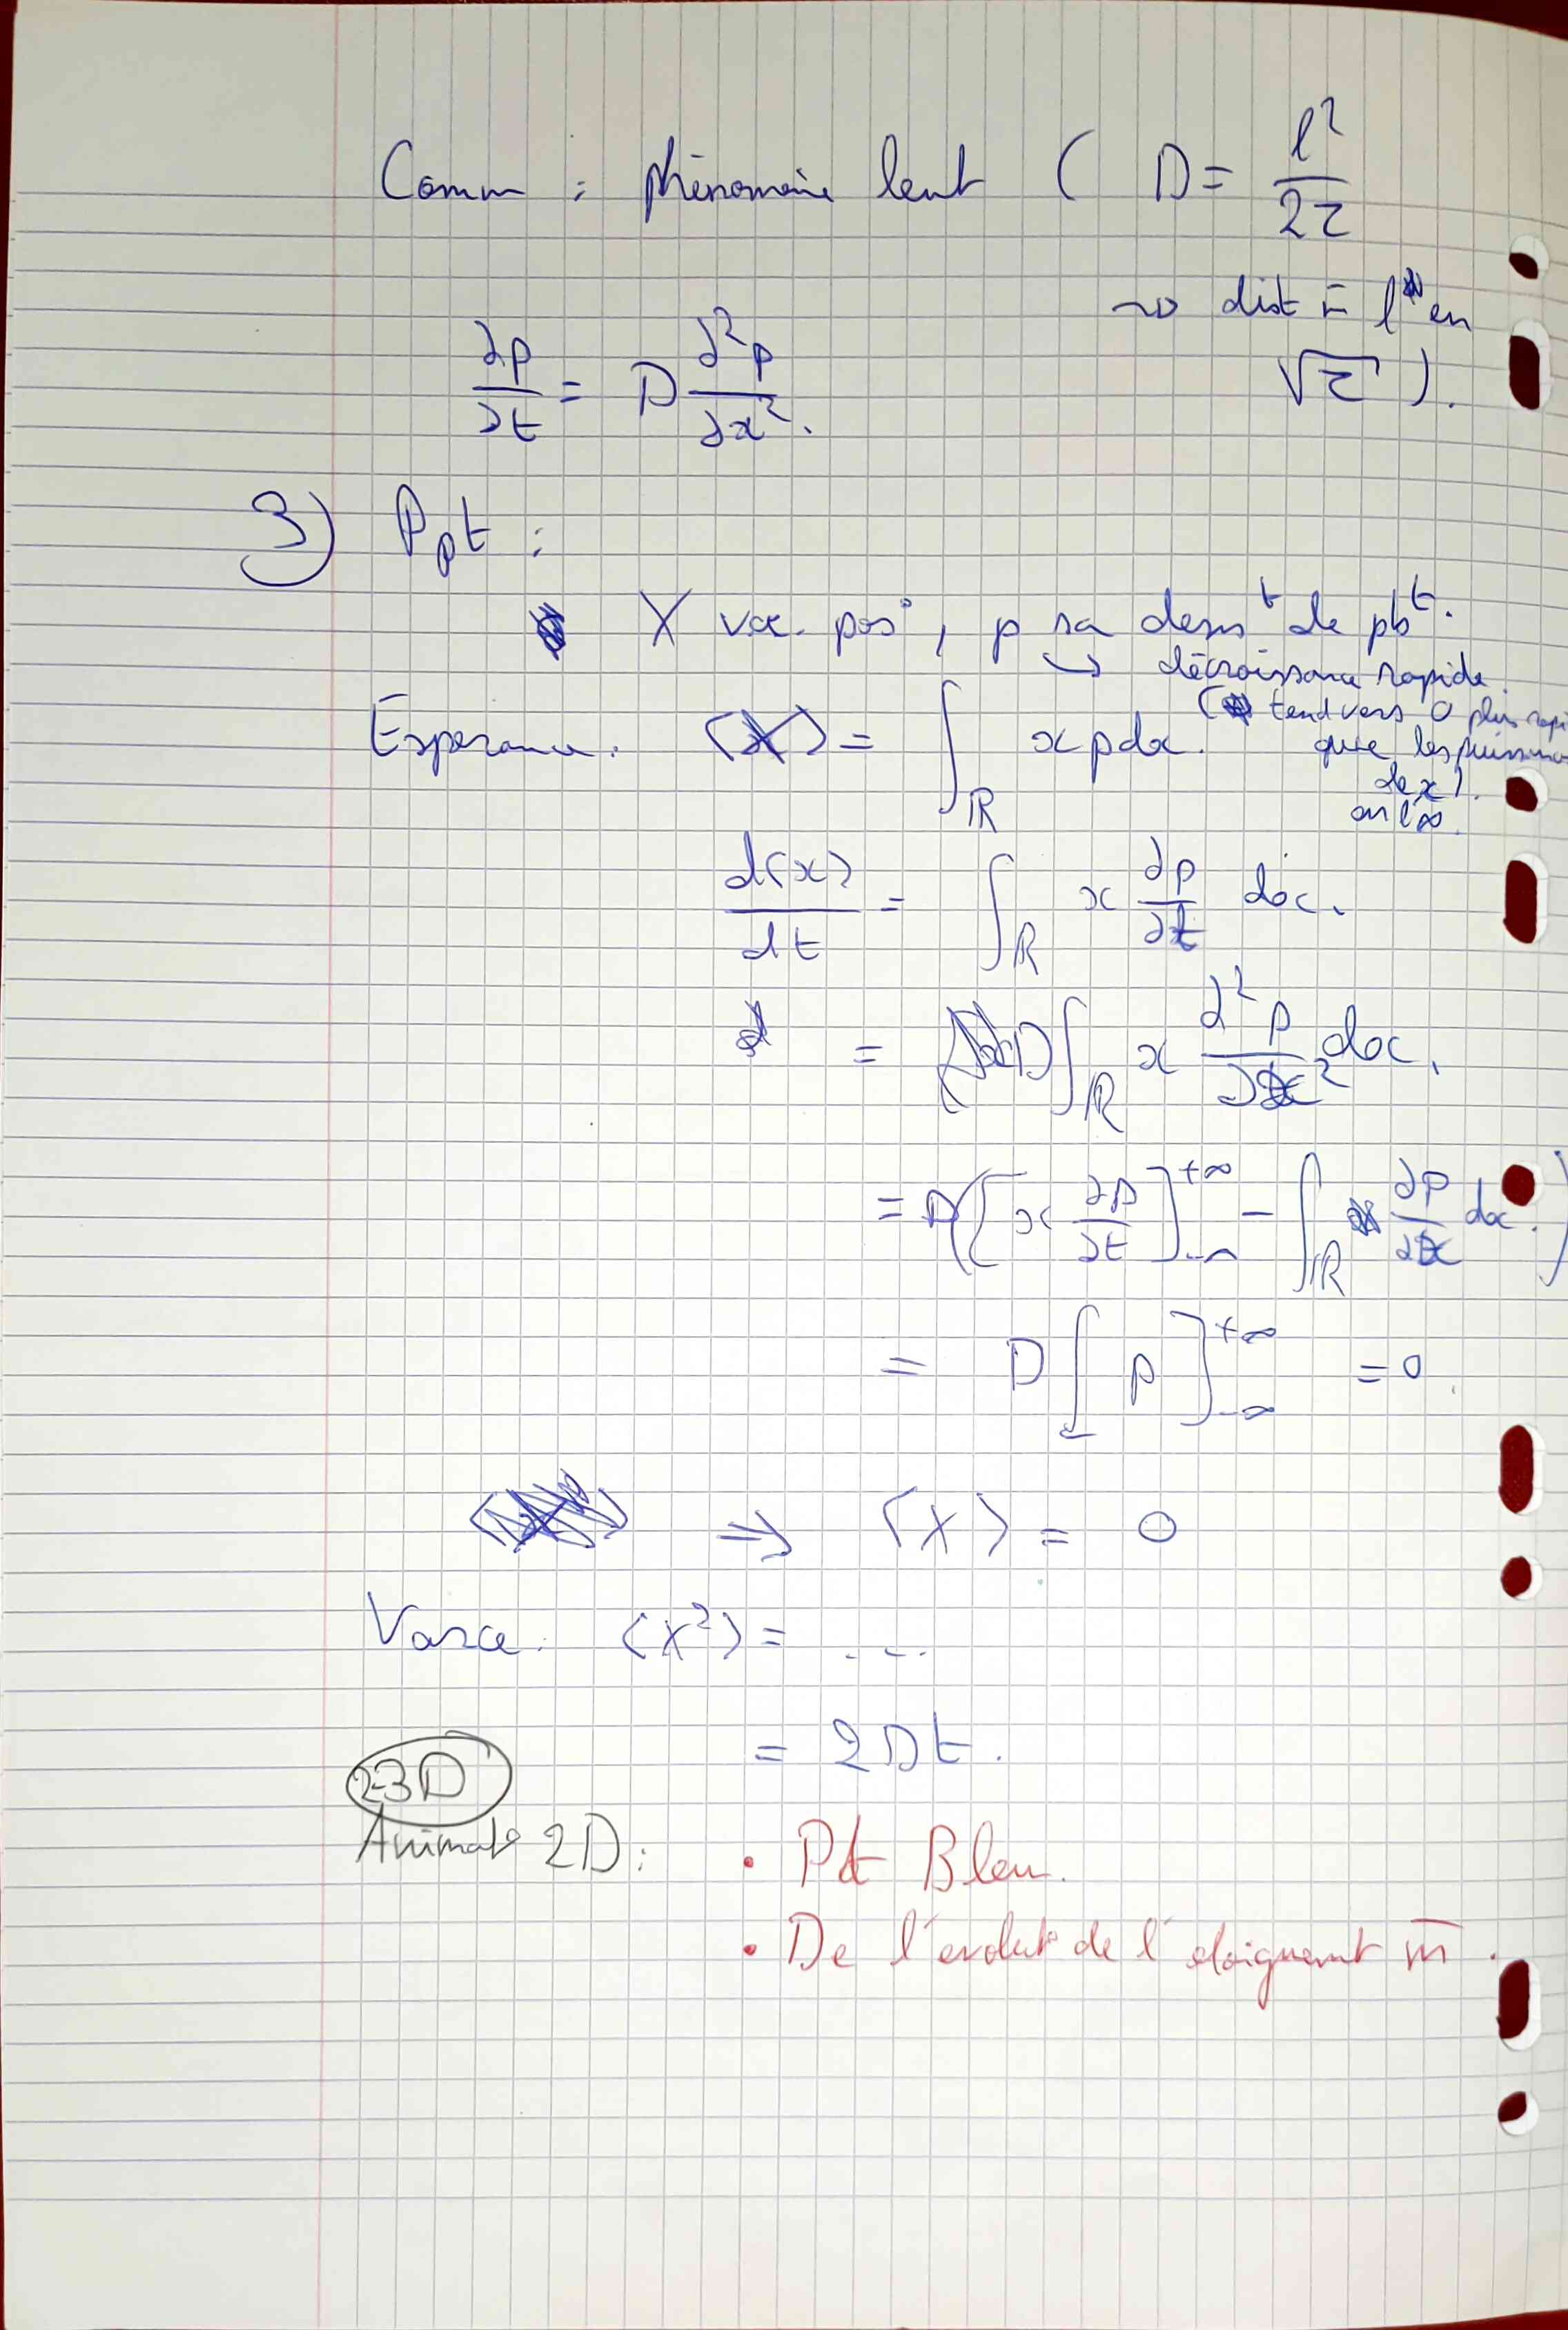 Comm : phénomène lent ( D = l²/2τ
~> dist = l en
√τ ).
∂p/∂t = D ∂²p/∂x².
3) Ppt :
X va. pos°, p sa densᵗ de pbᵗ.
↳ décroissance rapide.
( tend vers 0 plus rapi
que les puissance
de x).
en l'∞.
Esperance. ⟨X⟩ = ∫_ℝ x p dx.
d⟨x⟩/dt = ∫_ℝ x ∂p/∂t dx.
= D ∫_ℝ x ∂²p/∂x² dx.
= D([x ∂p/∂t]_{-∞}^{+∞} - ∫_ℝ ∂p/∂x dx.)
= D [p]_{-∞}^{+∞} = 0.
⇒ ⟨X⟩ = 0
Varce. ⟨X²⟩ = ...
= 2Dt.
2-3D
Animat° 2D :
• Pt Bleu.
• De l'evolut° de l'eloignemt m̄.